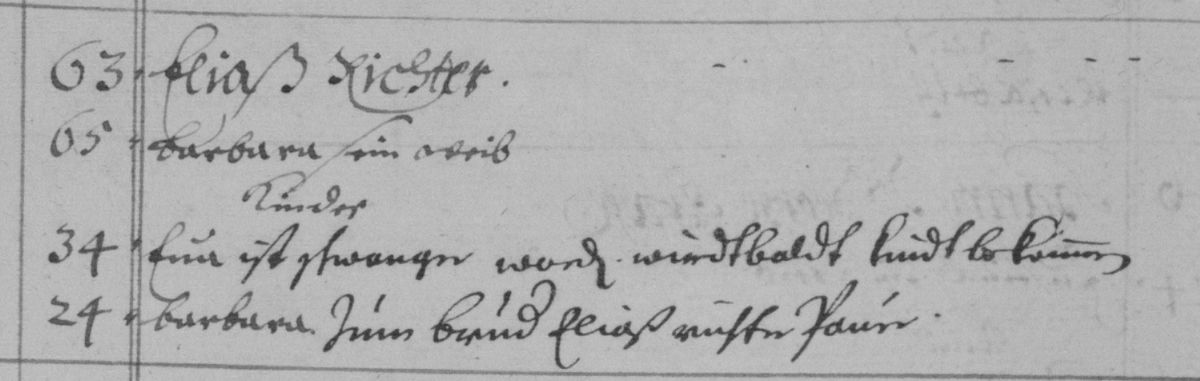 63 Eliaß Richter.
65 barbara sein weib
Kinder
34 Eua ist schwanger word. wirdt baldt kindt bekomen
24 barbara. Zum brud Eliaß richter